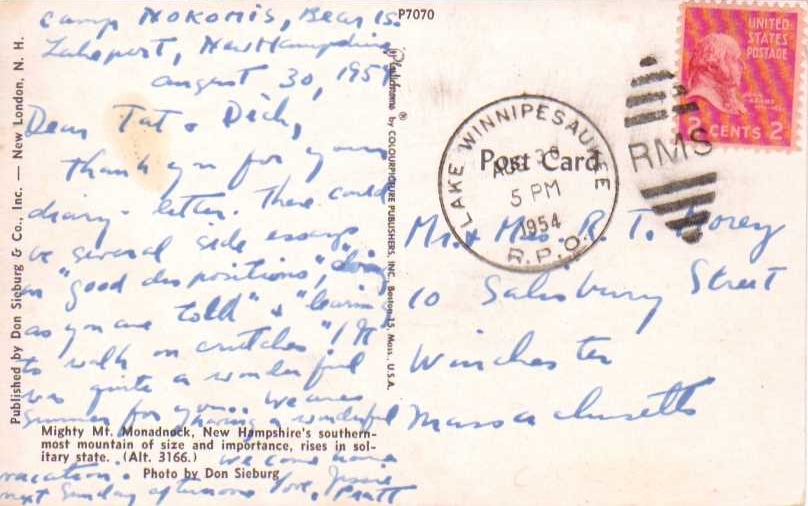 Camp Nokomis, Bear Is.
Lakeport, New Hampshire
August 30, 1954
Dear Tat & Dick,
Thank you for your
diary-letter. There could
be several side essays
on "good dispositions", "doing
as you are told" & "learning
to walk on crutches"! It
was quite a wonderful
summer for you. We are
having a wonderful
vacation. We come home
next Sunday afternoon Love, Jessie
Pratt
Mighty Mt. Monadnock, New Hampshire's southern-
most mountain of size and importance, rises in sol-
itary state. (Alt. 3166.)
Photo by Don Sieburg
Published by Don Sieburg & Co., Inc. — New London, N. H.
Plastichrome ® by COLOURPICTURE PUBLISHERS, INC., Boston 15, Mass., U.S.A.
P7070
Post Card
LAKE WINNIPESAUKEE
AUG 30
5 PM
1954
R.P.O.
RMS
UNITED
STATES
POSTAGE
JOHN
ADAMS
2 CENTS 2
Mr. & Mrs. R. T. Morey
10 Salisbury Street
Winchester
Massachusetts